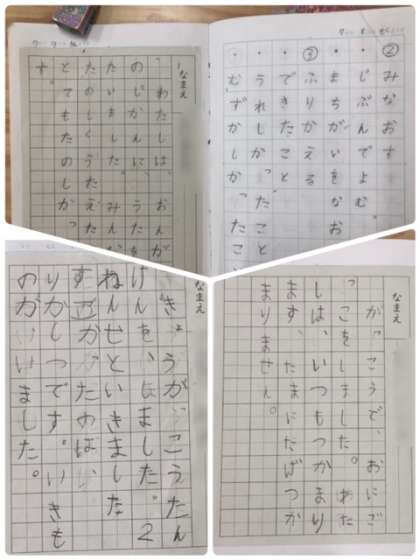 なまえ
わたしは、おんが
のじかんに、う
たいました。みんな
たのしくうたえた
とてもたのしかっ
す。
②みなおす
・じぶんでよむ。
・まちがいをなお
③ふりかえる
・できたこと
・うれしかったこと
・むずかしかったこ
なまえ
きょうがっこうたん
けんを、しました。2
ねんせいといきました
すごかったのは、
りかしつです。いきも
のが、いました。
なまえ
がっこうで、おにご
っこをしました。わた
しは、いつもつかまり
ます、たまにたばつか
まりません。